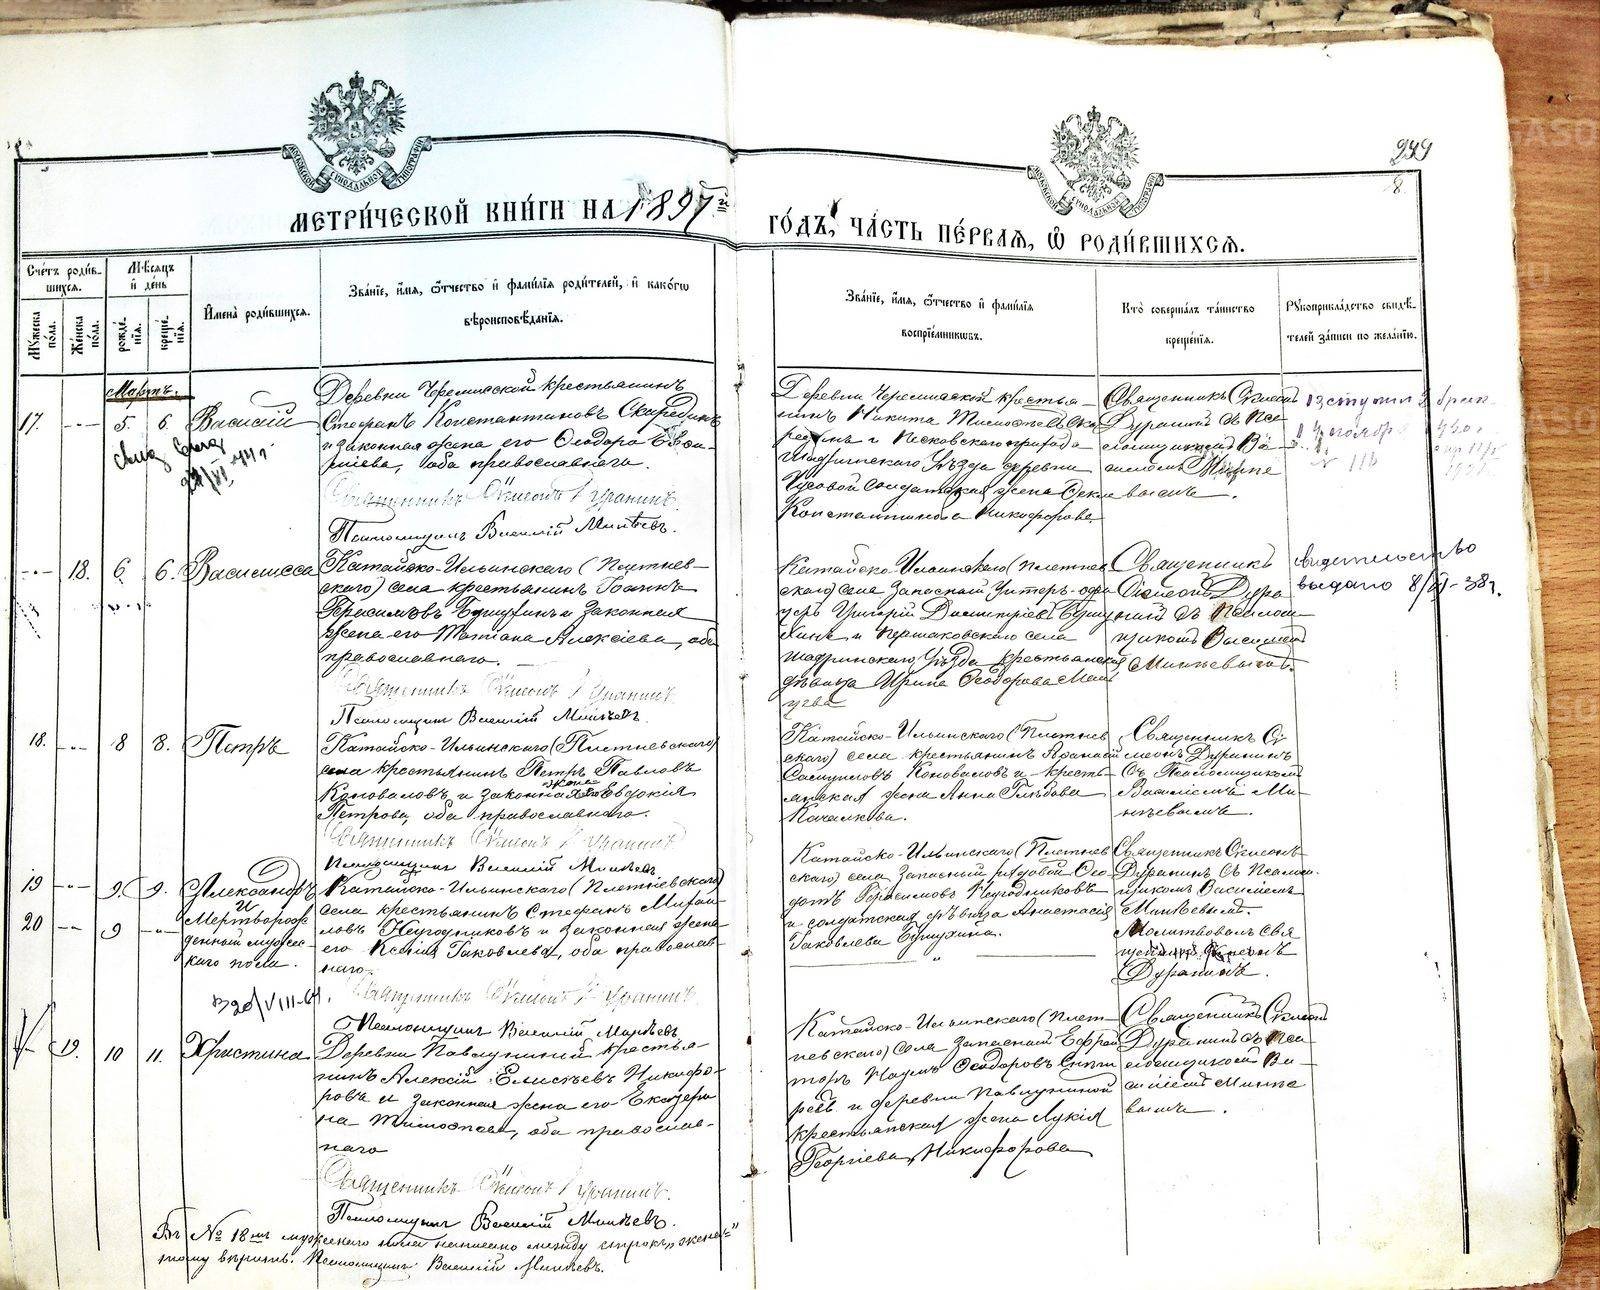 249
МЕТРИ́ЧЕСКОЙ КНИ́ГИ НА 1897 ГО́ДЪ, ЧА́СТЬ ПЕ́РВАЯ, Ѡ҆ РОДИ́ВШИХСЯ.
МОСКОВСКОЙ СѴНОДАЛЬНОЙ ТИПОГРАФІИ
МОСКОВСКОЙ СѴНОДАЛЬНОЙ ТИПОГРАФІИ
8.
Сче́тъ роди́в-
шихся.
Му́жеска по́ла.
Же́нска по́ла.
Мѣ́сяцъ
и҆ де́нь
рожде́нїя.
креще́нїя.
И҆мена̀ роди́вшихся.
Зва́нїе, и҆́мя, ѻ҆́тчество и҆ фами́лїя роди́телей, и҆ како́гѡ
вѣроисповѣ́данїя.
Зва́нїе, и҆́мя, ѻ҆́тчество и҆ фами́лїя
воспрїе́мникѡвъ.
Кто̀ соверша́лъ та́инство
креще́нїя.
Рꙋкоприкла́дство свидѣ́-
телей за́писи по жела́нїю.
Мартъ.
17. - - - 5. 6. Василій
Деревни Черемисской крестьянинъ
Стефанъ Константиновъ Скиредінъ
и законная жена его Ѳеодора
оба православнаго.
Священникъ Симеонъ Дуранинъ
Псаломщикъ Василій Минѣевъ.
Деревни Черемисской крестья-
нинъ Никита
и Песковскаго прихода
Шадринскаго уѣзда деревни
солдатская жена
Константинова Никифорова
Священникъ Симеонъ
Дуранинъ съ Пса-
ломщикомъ Ва-
силіемъ Минѣе
вымъ.
вступил
ноября
№ 116
- - - 18. 6. 6. Василисса
Катайско-Ильинскаго (Плетнев-
скаго) села крестьянинъ Іоаннъ
Герасимовъ и законная
жена его Татіана Алексіева, оба
православнаго.
Священникъ Симеонъ Дуранинъ
Псаломщикъ Василій Минѣевъ.
Катайско-Ильинскаго (Плетнев
скаго) села Запасный унтеръ-офи
церъ Григорій Димитріевъ
и Першаковскаго села
Шадринскаго уѣзда крестьянская
дѣвица Ирина Ѳеодорова
Священникъ
Симеонъ Дура
нинъ съ Псалом
щикомъ Василіемъ
Минѣевымъ.
свидетельство
выдано 8/VI-38г.
18. - - - 8 8. Петръ
Катайско-Ильинскаго (Плетневскаго)
села крестьянинъ Петръ Павловъ
Коноваловъ и законная жена Евдокія
Петрова, оба православнаго.
Священникъ Симеонъ Дуранинъ
Псаломщикъ Василій Минѣевъ
Катайско-Ильинскаго (Плетнев
скаго) села крестьянинъ Аѳанасій
Самуиловъ Коноваловъ и кресть-
янская жена Анна Глѣбова
Качалкова.
Священникъ Си-
меонъ Дуранинъ
съ Псаломщикомъ
Василіемъ Ми-
нѣевымъ.
19 - - - 9. 9. Александръ
и
20 - - 9 - - - Мертворож
денный мужес-
каго пола.
Катайско-Ильинскаго (Плетневскаго)
села крестьянинъ Стефанъ Михаи-
ловъ Негодниковъ и законная жена
его Ксенія Іаковлева, оба православ-
наго.
Священникъ Симеонъ Дуранинъ.
Псаломщикъ Василій Минѣевъ
Катайско-Ильинскаго (Плетнев
скаго) села Запасный рядовой Ѳео
дотъ Герасимовъ Негодниковъ
и солдатская дѣвица Анастасія
Іаковлева
Священникъ Симеонъ
Дуранинъ съ Псалом-
щикомъ Василіемъ
Минѣевымъ.
Молитвовалъ Свя
щенникъ Симеонъ
Дуранинъ.
19. 10 11. Христина
Деревни Павлуниной крестья-
нинъ Алексій Елисѣевъ Никифо-
ровъ и законная жена его Екатери
на Тимоѳеева, оба православ-
наго
Священникъ Симеонъ Дуранинъ.
Псаломщикъ Василій Минѣевъ.
Катайско-Ильинскаго (Плет-
невскаго) села Запасный Ефрей
торъ Наумъ Ѳеодоровъ
и деревни Павлуниной
крестьянская жена Лукія
Георгіева Никифорова
Священникъ Симеонъ
Дуранинъ съ Пса-
ломщикомъ Ва-
силіемъ Минѣе
вымъ.
Въ № 18мъ мужескаго пола написано между строкъ „жена"
тому вѣрить. Псаломщикъ Василій Минѣевъ.